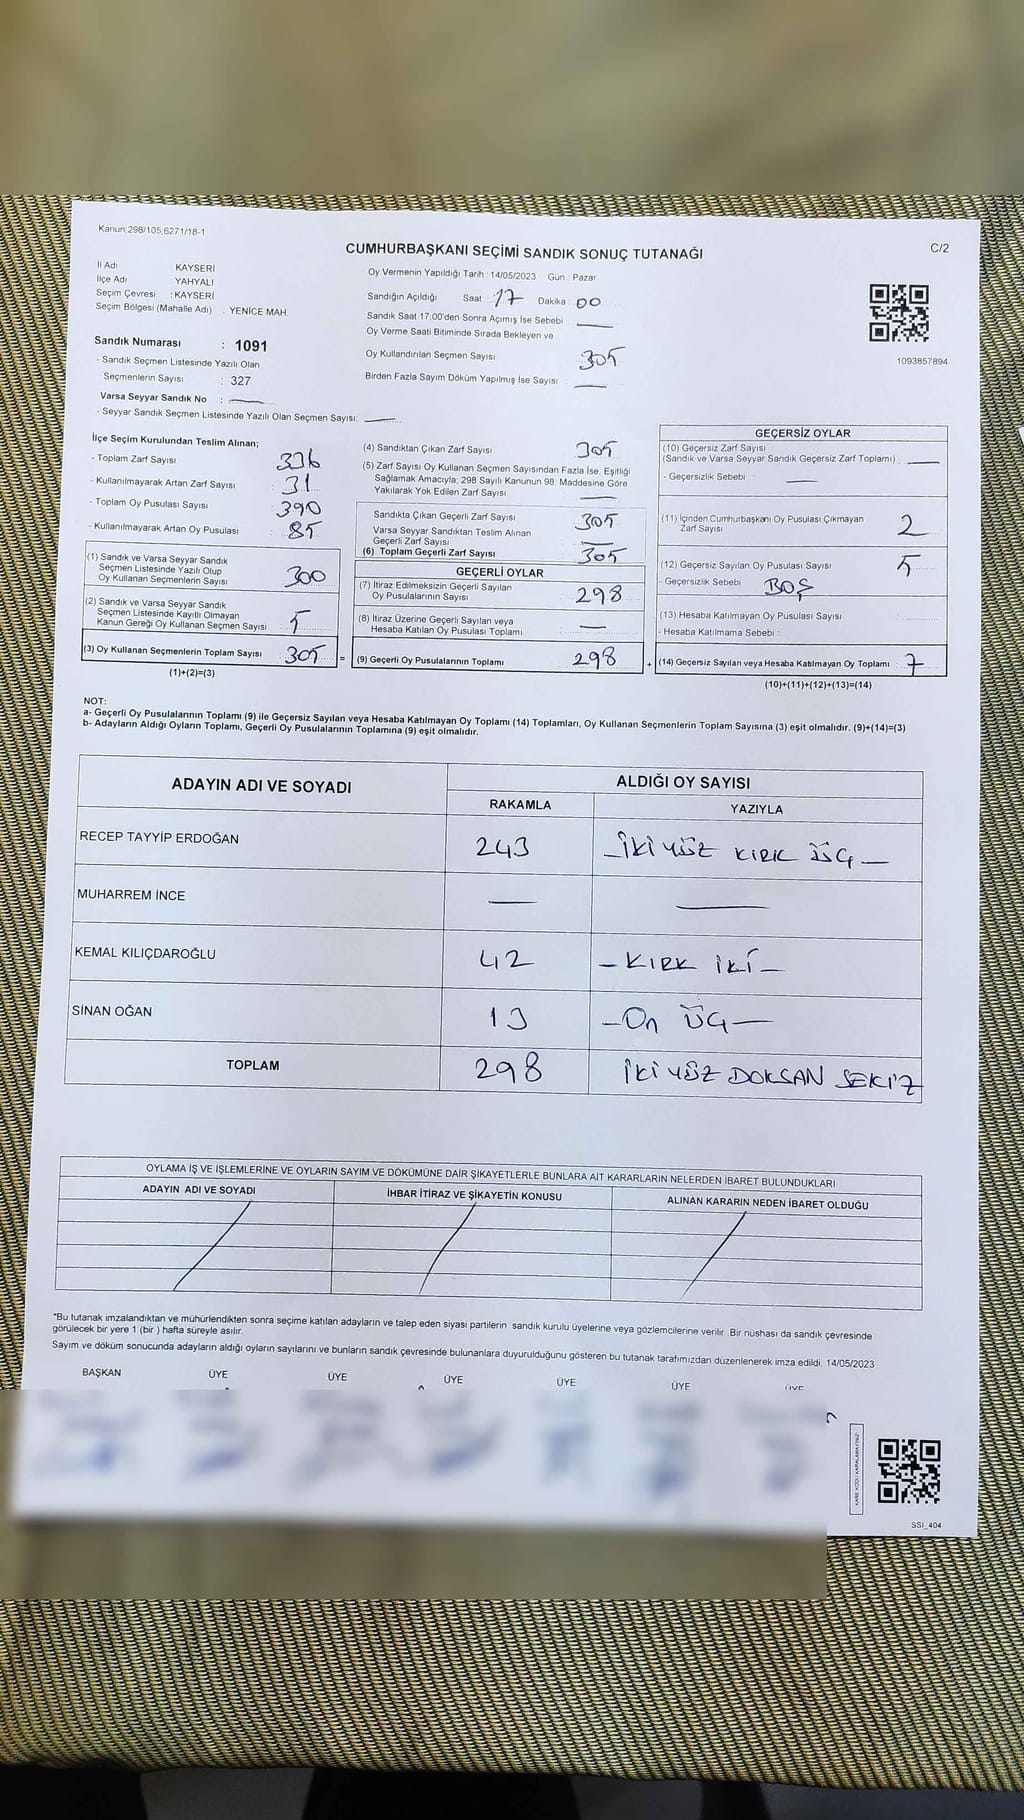 Kanun:298/105;6271/18-1
C/2
CUMHURBAŞKANI SEÇİMİ SANDIK SONUÇ TUTANAĞI
İl Adı : KAYSERİ
İlçe Adı : YAHYALI
Seçim Çevresi : KAYSERİ
Seçim Bölgesi (Mahalle Adı) : YENİCE MAH.
Sandık Numarası : 1091
- Sandık Seçmen Listesinde Yazılı Olan
Seçmenlerin Sayısı : 327
Varsa Seyyar Sandık No : —
- Seyyar Sandık Seçmen Listesinde Yazılı Olan Seçmen Sayısı: —
Oy Vermenin Yapıldığı Tarih : 14/05/2023 Gün : Pazar
Sandığın Açıldığı Saat : 17 Dakika : 00
Sandık Saat 17:00'den Sonra Açmış İse Sebebi : —
Oy Verme Saati Bitiminde Sırada Bekleyen ve
Oy Kullandırılan Seçmen Sayısı 305
Birden Fazla Sayım Döküm Yapılmış İse Sayısı : —
1093857894
İlçe Seçim Kurulundan Teslim Alınan;
- Toplam Zarf Sayısı : 336
- Kullanılmayarak Artan Zarf Sayısı : 31
- Toplam Oy Pusulası Sayısı : 390
- Kullanılmayarak Artan Oy Pusulası : 85
(1) Sandık ve Varsa Seyyar Sandık
Seçmen Listesinde Yazılı Olup
Oy Kullanan Seçmenlerin Sayısı : 300
(2) Sandık ve Varsa Seyyar Sandık
Seçmen Listesinde Kayıtlı Olmayan
Kanun Gereği Oy Kullanan Seçmen Sayısı : 5
(3) Oy Kullanan Seçmenlerin Toplam Sayısı : 305 =
(1)+(2)=(3)
(4) Sandıktan Çıkan Zarf Sayısı : 305
(5) Zarf Sayısı Oy Kullanan Seçmen Sayısından Fazla İse, Eşitliği
Sağlamak Amacıyla; 298 Sayılı Kanunun 98. Maddesine Göre
Yakılarak Yok Edilen Zarf Sayısı : —
Sandıkta Çıkan Geçerli Zarf Sayısı : 305
Varsa Seyyar Sandıktan Teslim Alınan
Geçerli Zarf Sayısı : —
(6) Toplam Geçerli Zarf Sayısı : 305
GEÇERLİ OYLAR
(7) İtiraz Edilmeksizin Geçerli Sayılan
Oy Pusulalarının Sayısı : 298
(8) İtiraz Üzerine Geçerli Sayılan veya
Hesaba Katılan Oy Pusulası Toplamı : —
(9) Geçerli Oy Pusulalarının Toplamı : 298 +
GEÇERSİZ OYLAR
(10) Geçersiz Zarf Sayısı
(Sandık ve Varsa Seyyar Sandık Geçersiz Zarf Toplamı) : —
- Geçersizlik Sebebi : —
(11) İçinden Cumhurbaşkanı Oy Pusulası Çıkmayan
Zarf Sayısı : 2
(12) Geçersiz Sayılan Oy Pusulası Sayısı : 5
- Geçersizlik Sebebi : BOŞ
(13) Hesaba Katılmayan Oy Pusulası Sayısı :
- Hesaba Katılmama Sebebi :
(14) Geçersiz Sayılan veya Hesaba Katılmayan Oy Toplamı : 7
(10)+(11)+(12)+(13)=(14)
NOT:
a- Geçerli Oy Pusulalarının Toplamı (9) ile Geçersiz Sayılan veya Hesaba Katılmayan Oy Toplamı (14) Toplamları, Oy Kullanan Seçmenlerin Toplam Sayısına (3) eşit olmalıdır. (9)+(14)=(3)
b- Adayların Aldığı Oyların Toplamı, Geçerli Oy Pusulalarının Toplamına (9) eşit olmalıdır.
ADAYIN ADI VE SOYADI ALDIĞI OY SAYISI
RAKAMLA YAZIYLA
RECEP TAYYİP ERDOĞAN 243 —İKİ YÜZ KIRK ÜÇ—
MUHARREM İNCE — —
KEMAL KILIÇDAROĞLU 42 —KIRK İKİ—
SİNAN OĞAN 13 —On ÜÇ—
TOPLAM 298 İKİ YÜZ DOKSAN SEKİZ
OYLAMA İŞ VE İŞLEMLERİNE VE OYLARIN SAYIM VE DÖKÜMÜNE DAİR ŞİKAYETLERLE BUNLARA AİT KARARLARIN NELERDEN İBARET BULUNDUKLARI
ADAYIN ADI VE SOYADI İHBAR İTİRAZ VE ŞİKAYETİN KONUSU ALINAN KARARIN NEDEN İBARET OLDUĞU
*Bu tutanak imzalandıktan ve mühürlendikten sonra seçime katılan adayların ve talep eden siyasi partilerin sandık kurulu üyelerine veya gözlemcilerine verilir. Bir nüshası da sandık çevresinde
görülecek bir yere 1 (bir ) hafta süreyle asılır.
Sayım ve döküm sonucunda adayların aldığı oyların sayılarını ve bunların sandık çevresinde bulunanlara duyurulduğunu gösteren bu tutanak tarafımızdan düzenlenerek imza edildi. 14/05/2023
BAŞKAN ÜYE ÜYE ÜYE ÜYE ÜYE ÜYE
KARE KODU KARALAMAYINIZ!
SSI_404